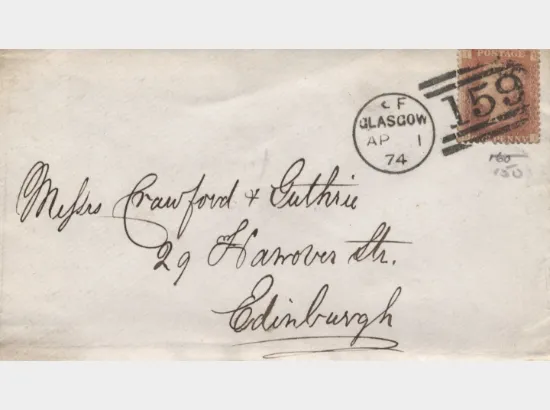 POSTAGE
PENNY
159
F
GLASGOW
AP 1
74
160
150
Messrs Crawford & Guthrie
29 Hanover Str.
Edinburgh